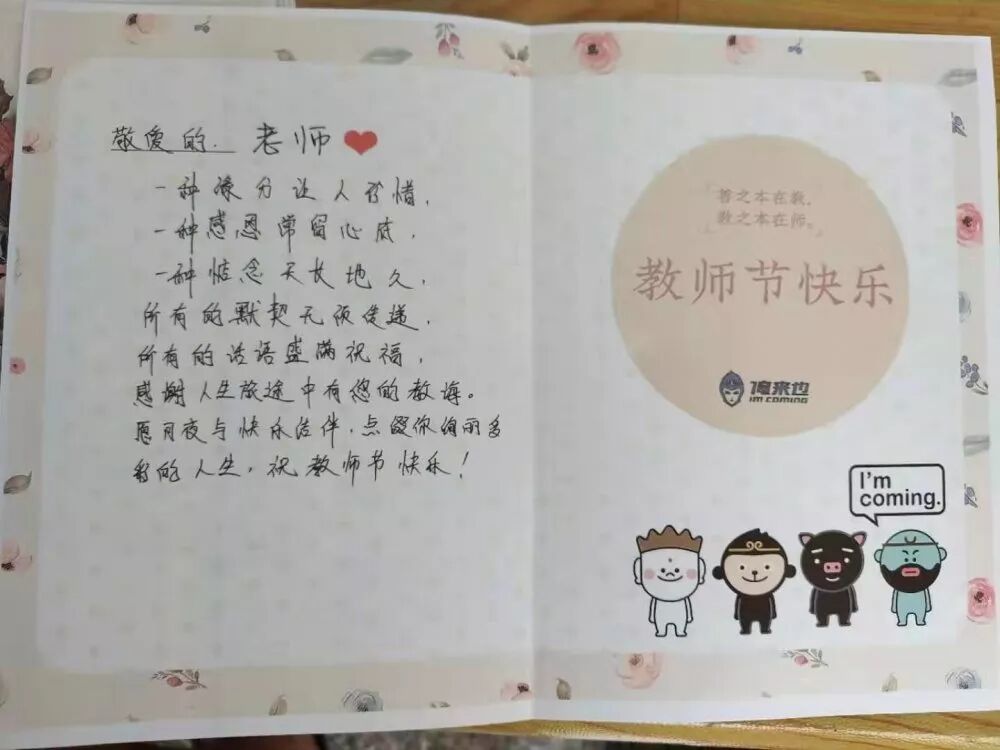 敬爱的. 老师
一种缘分让人珍惜,
一种感恩常留心底,
一种惦念天长地久,
所有的默契无须传递,
所有的话语盛满祝福,
感谢人生旅途中有您的教诲。
愿日夜与快乐结伴,点缀你绚丽多
彩的人生,祝教师节快乐!
善之本在教,
教之本在师。
教师节快乐
俺来也
IM COMING
I'm
coming.